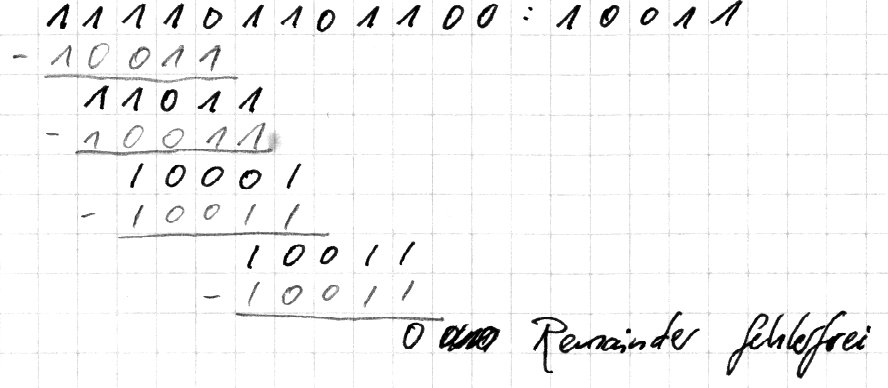 1111011101100 : 10011
- 10011
11011
- 10011
10001
- 10011
10011
- 10011
0 Remainder fehlerfrei